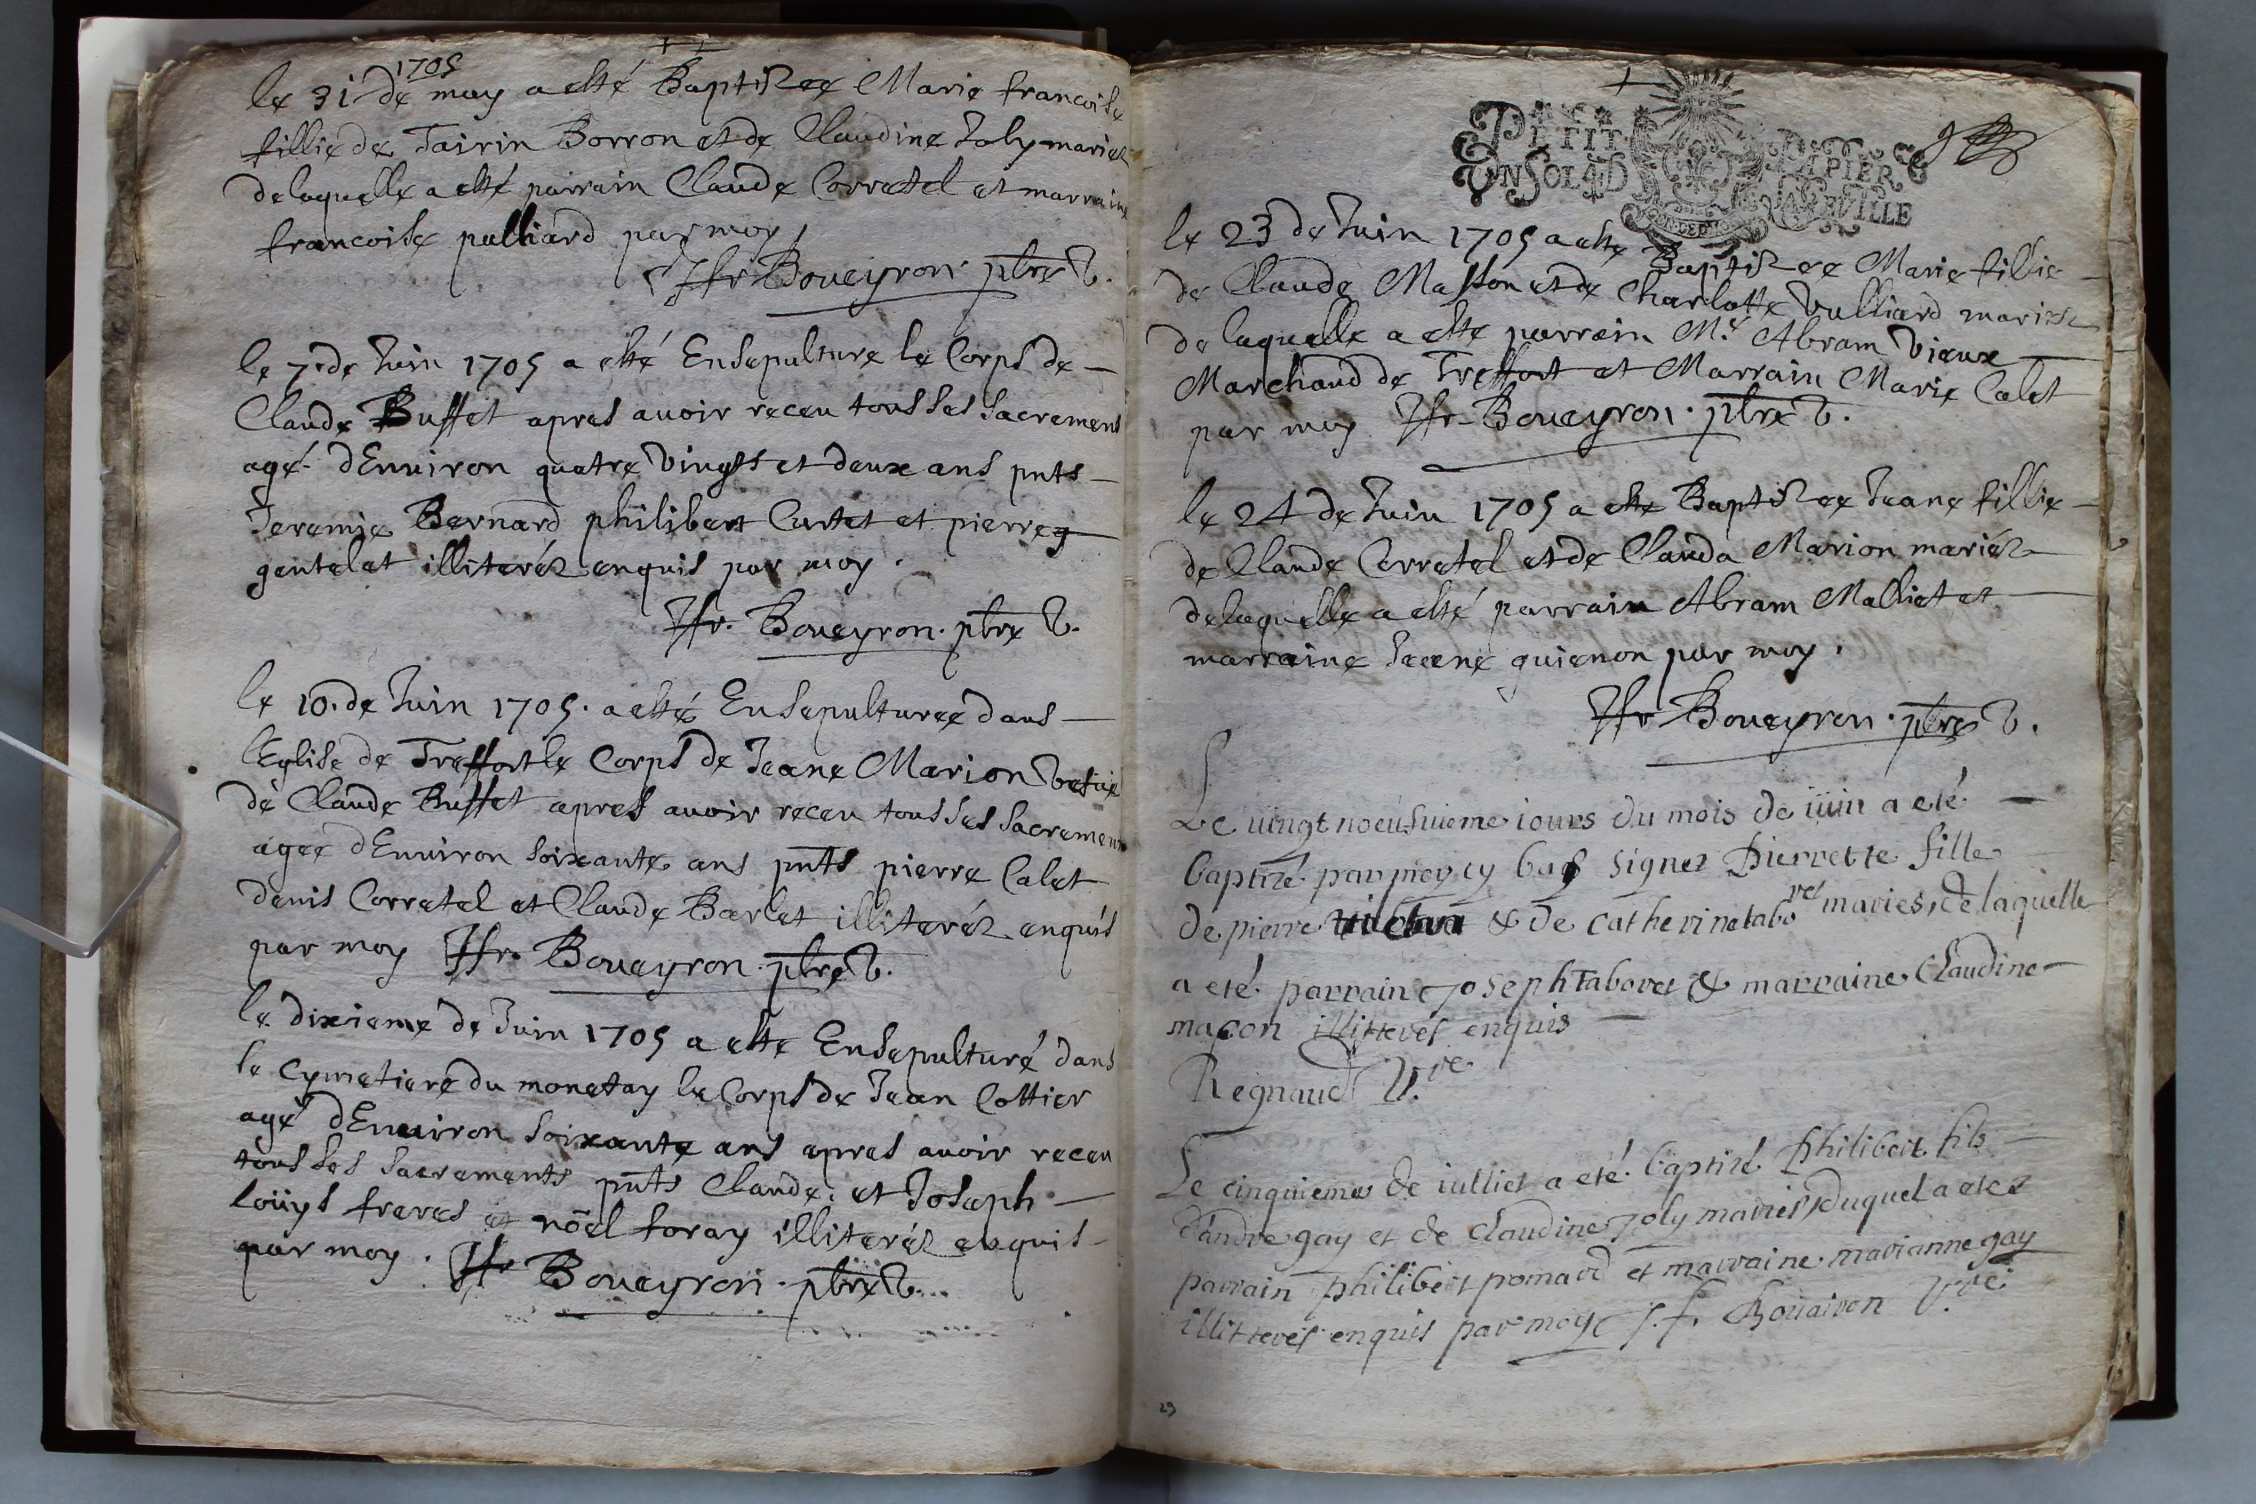 1705
le 31 de may a esté Baptisee Marie francoise
fillie de Tairin Borron et de Claudine Joly mariez
delaquelle a esté parrain Claude Corretel et marraine
francoise pulliard par moy
Jfr Boueyron ptre V.
le 7. de Juin 1705 a esté Ensepulture le Corps de
Claude Buffet apres auoir receu tous ses sacrements
agé dEnuiron quatre vingts et deux ans pnts
Jeremie Bernard philibert Curtet et pierre
gentelet illiteréz enquis par moy.
Jfr. Boueyron. ptre V.
le 10. de Juin 1705. a esté Ensepulturee dans
lEglise de Treffort le Corps de Jeane Marion vefue
de Claude Buffet apres auoir receu tous ses sacrements
agee dEnuiron soixante ans pnts pierre Calet
denis Corretel et Claude Barlet illiteréz enquis
par moy Jfr. Boueyron. ptre V.
le dixieme de Juin 1705 a este Ensepulturé dans
le Cymetiere du monetay le Corps de Jean Cottier
agé dEnuiron soixante ans apres auoir receu
tous ses sacrements pnts Claude. et Joseph
Loüys freres et nöel foray illiteréz enquis
par moy. Jfr Boueyron. ptre V.
PETIT PAPIER
UN SOL 4 D LA FEUILLE
le 23 de Juin 1705 a este Baptisee Marie fillie
de Claude Masson et de Charlotte Vulliard mariez
de laquelle a este parrain Mr. Abram Vieux
Marchand de Treffort et Marrain Marie Calet
par moy Jfr Boueyron. ptre V.
le 24 de Juin 1705 a este Baptisee Jeane fillie
de Claude Corretel et de Clauda Marion mariéz
delaquelle a esté parrain Abram Malliet et
marraine Jeane guienon par moy.
Jfr Boueyron. ptre V.
Le vingt noeusuieme iours du mois de iuin a eté
baptizé par moy cy bas signez Pierrette fille
de pierre & de catherine tabo ret maries, de laquelle
a eté parrain Joseph Taboret & marraine Claudine
maçon illitterés enquis
Regnaud V.re
Le cinquieme de iulliet a eté baptizé Philibert fils
d'andre gay et de claudine joly mariés, duquel a eté
parrain philibert pomard et marraine marianne gay
illitterés enquis par moy J. f. Boüairon V.re
29